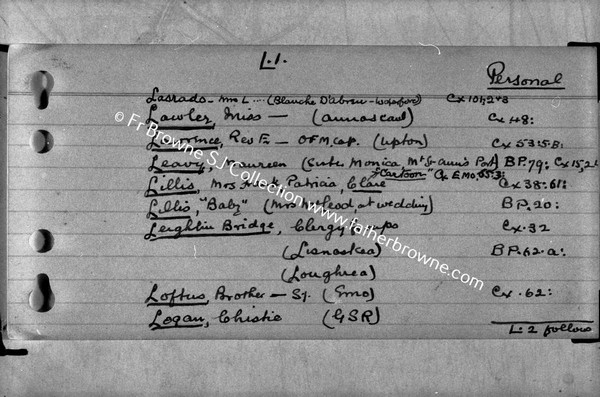 L.1.
Personal
Lasrado - Mrs L .... (Blanche D'abreu - Waterford) Cx 101, 2+3
Lawler, Miss — (annascaul) Cx 48:
Lawrence, Rev F. — O.F.M. Cap. (Upton) Cx 53:5.8:
Leavy, Maureen (Sister Monica, Mt St Annis Port) B.P. 79: Cx 15,2
"Cartoon" Cx EMO, 65.3:
Lillis, Mrs Frank, Patricia, Clare Cx 38:61:
Lillis, "Baby" (Mrs McLeod, at wedding) B.P. 20:
Leighlin Bridge, Clergy Groups Cx. 32
(Lisnaskea) B.P. 62.a:
(Loughrea)
Loftus, Brother — SJ. (Emo) Cx. 62:
Logan, Christie (GSR)
L: 2 follows
© Fr Browne S.J Collection www.fatherbrowne.com